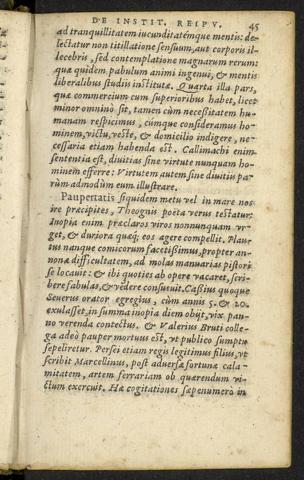 DE INSTIT. REIPV. 45
ad tranquillitatem iucunditatémque mentis: de-
lectatur non titillatione sensuum, aut corporis il-
lecebris, sed contemplatione magnarum rerum:
quæ quidem pabulum animi ingenui, & mentis
liberalibus studiis institutæ. Quarta illa pars,
quæ commercium cum superioribus habet, licet
minor omninò sit, tamen cùm necessitatem hu-
manam respicimus, cúmque consideramus ho-
minem, victu, veste, & domicilio indigere, ne-
cessaria etiam habenda est. Callimachi enim
sententia est, diuitias sine virtute nunquam ho-
minem efferre: Virtutem autem sine diuitiis pa-
rùm admodum eum illustrare.
Paupertatis siquidem metu vel in mare nos-
ire præcipites, Theognis poëta verus testatur:
Inopia enim præclaros viros nonnunquam vr-
get, & duriora quæq; eos agere compellit. Plau-
tus nanque comicorum facetissimus, propter an-
nonæ difficultatem, ad molas manuarias pistori
se locauit: & ibi quoties ab opere vacaret, scri-
bere fabulas, & vēdere consueuit. Cassius quoque
Seuerus orator egregius, cùm annis 5. & 20.
exulasset, in summa inopia diem obijt, vix pan-
no verenda contectus. & Valerius Bruti colle-
ga adeò pauper mortuus est, vt publico sumptu
sepeliretur. Persei etiam regis legitimus filius, vt
scribit Marcellinus, post aduersæ fortunæ cala-
mitatem, artem ferrariam ob quærendum vi-
ctum exercuit. Hæ cogitationes sæpenumero in